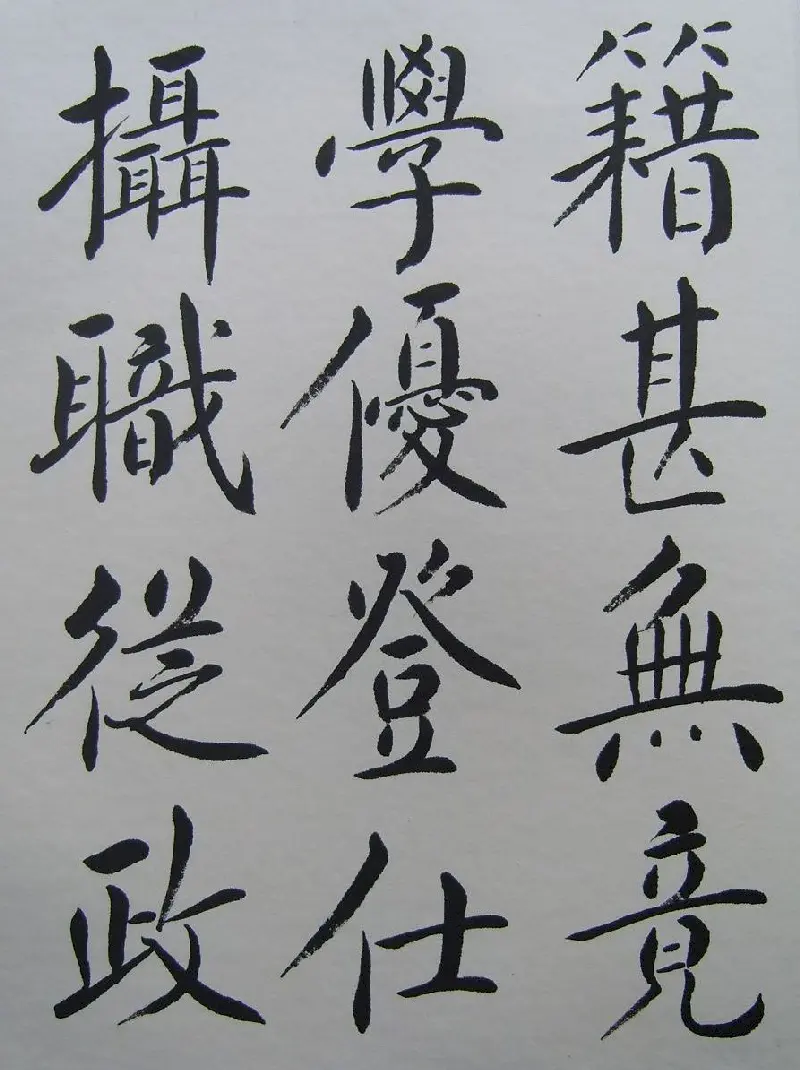 籍甚無竟
學優登仕
攝職從政